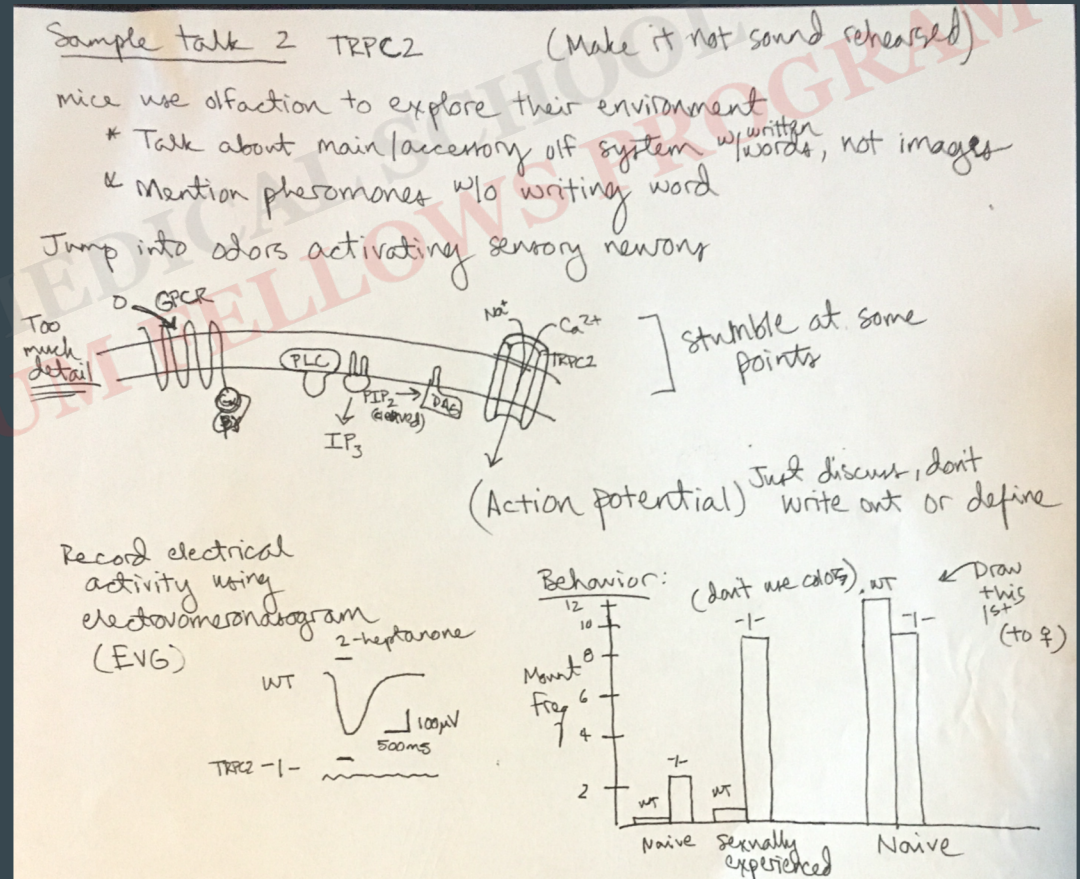 Sample talk 2 TRPC2 (Make it not sound rehearsed)
mice use olfaction to explore their environment
* Talk about main/accessory olf system w/ written words, not images
* Mention pheromones w/o writing word
Jump into odors activating sensory neurons
Too much detail
O GPCR
PLC
PIP2 (cleaved) → DAG
IP3
Na+ Ca2+
TRPC2
stumble at some points
(Action potential) Just discuss, don't write out or define
Record electrical
activity using
electrovomeronasogram
(EVG)
2-heptanone
WT
100μV
500ms
TRPC2 -/-
Behavior: (don't use colors)
Draw this 1st (to ♀)
Mount Freq
12
10
8
6
4
2
WT -/- WT -/- WT -/-
Naive Sexually experienced Naive
MEDICAL SCHOOL
UM FELLOWS PROGRAM